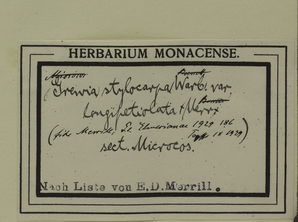 HERBARIUM MONACENSE.
Grewia stylocarpa Warb. var.
longipetiolata Merr
(fide Merrill, Pl. Elmerianae 1929 186
1929)
sect. Microcos.
Nach Liste von E.D.Merrill.